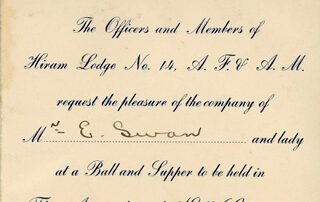 The Officers and Members of
Hiram Lodge No. 14, A. F. & A. M.
request the pleasure of the company of
Mr E. Swan and lady
at a Ball and Supper to be held in